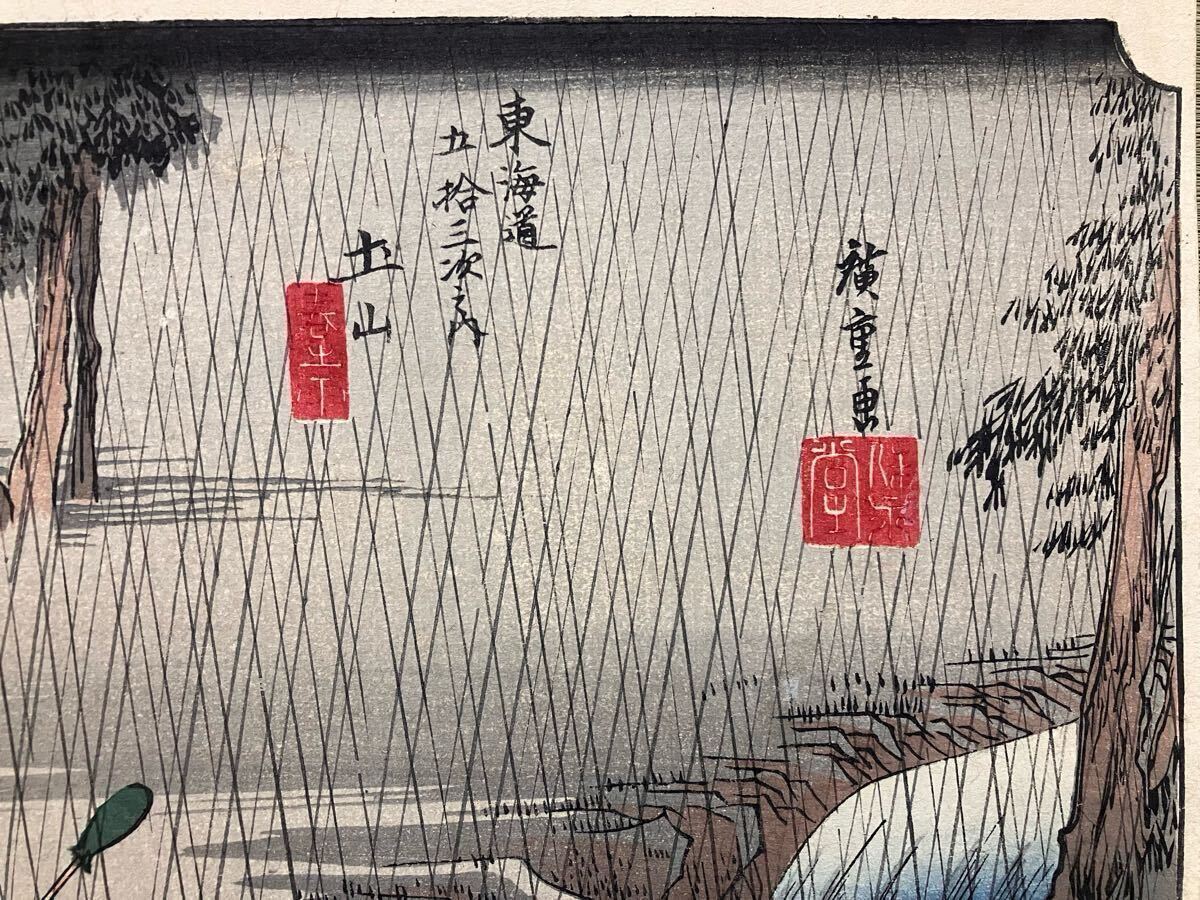 廣重画
保永
堂
東海道
五拾三次之内
土山
春之雨